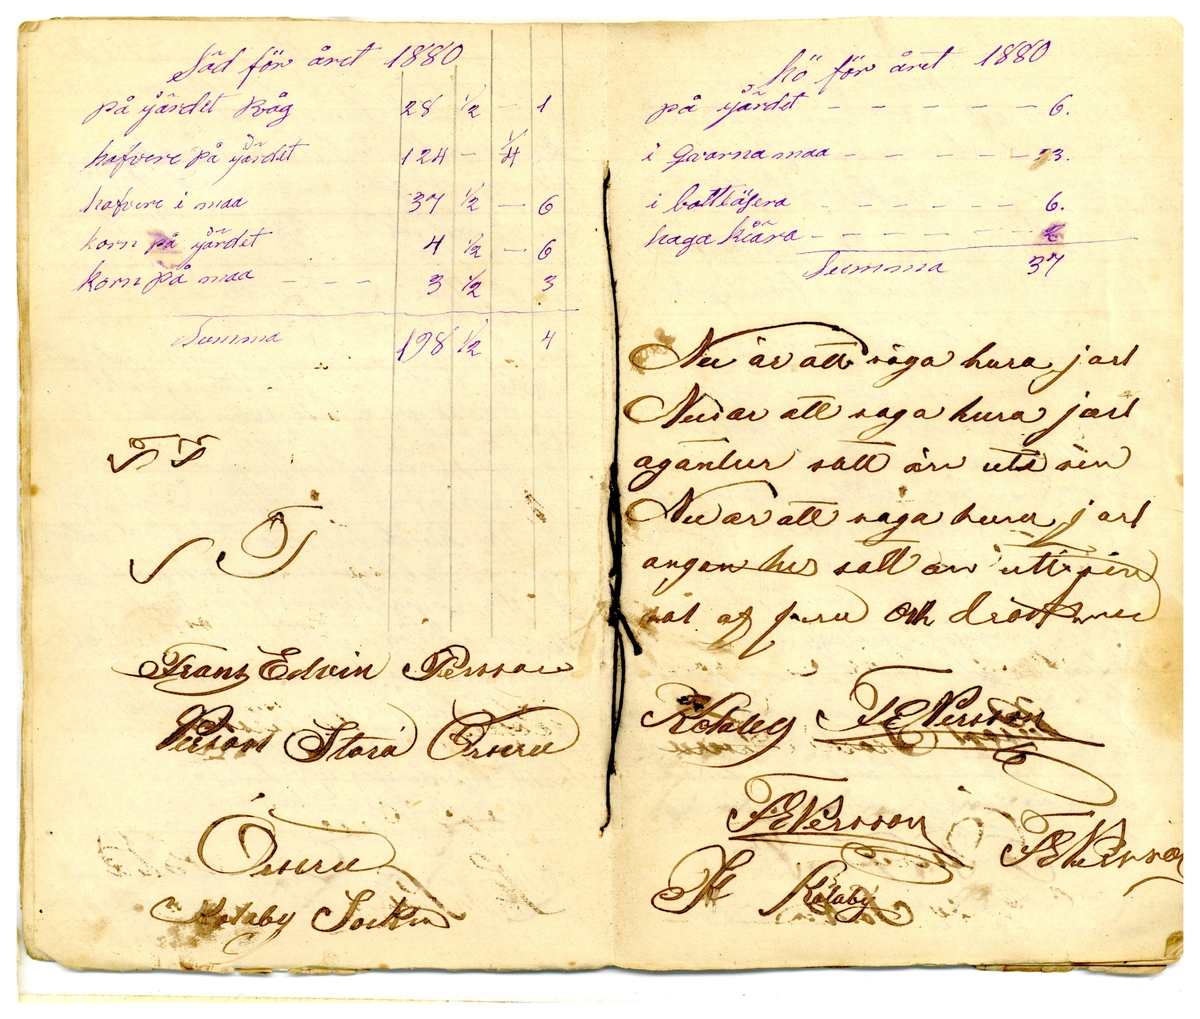 Säd för året 1880
på järdet Råg 28 1/2 — 1
hafvere på järdet 124 — 1/4
hafvere i maa 37 1/2 — 6
korn på järdet 4 1/2 — 6
korn på maa — — — 3 1/2 3
Summa 198 1/2 4
Frans Edvin Persson
Person Stora Örseru
Örseru
Kölaby Sockn
hö för året 1880
på järdet — — — — — — 6.
i qvarnamaa — — — — — 23.
i bottlösera — — — — — — 6.
haga kiära — — — — — — 2
Summa 37
Nu är att säga huru jarl
Nu är att saga huru jarl
satt än uti sin
Nu är att saga huru jarl
angan her satt än uti sin
sal af furu och drömmee
Kölaby F E Persson
F E Persson
F E Persson
Kölaby